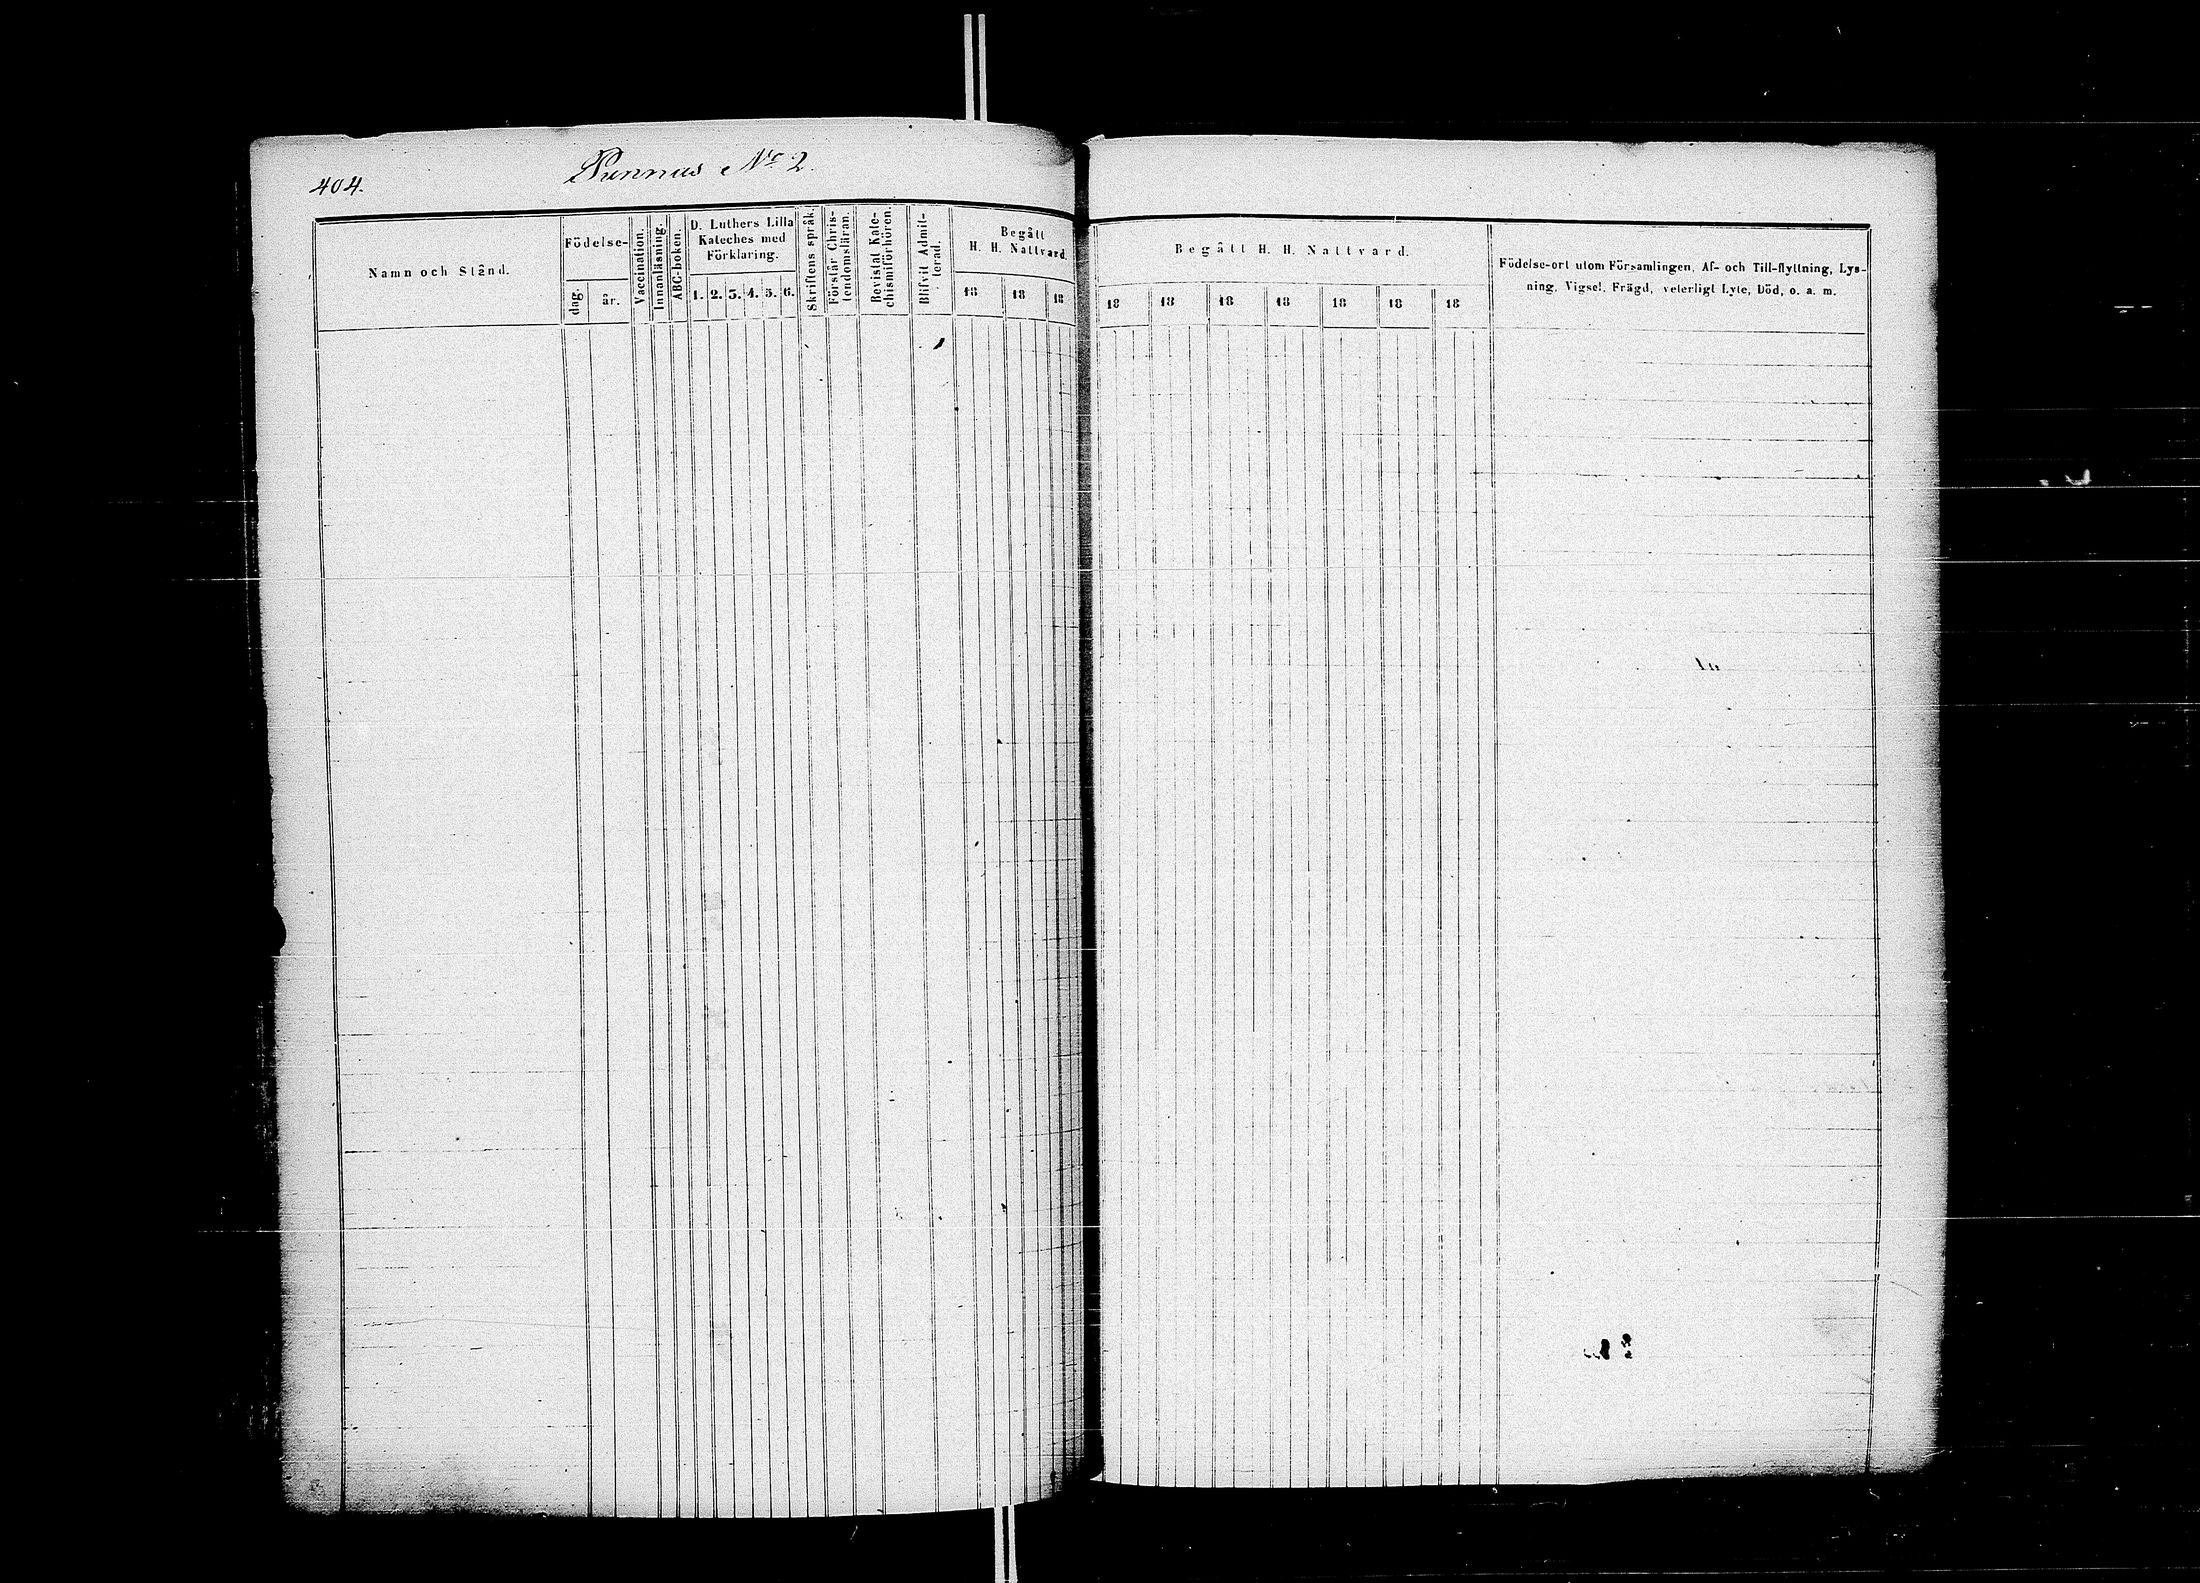 404.
Punnus No 2.
Namn och Stånd.
Födelse-
dag.
år.
Vaccination.
Innanläsning.
ABC-boken.
D. Luthers Lilla
Kateches med
Förklaring.
1. 2. 3. 4. 5. 6.
Skriftens språk.
Förstår Chris-
tendomsläran.
Bevistat Kate-
chismiförhören.
Blifvit Admit-
terad.
Begått
H. H. Nattvard.
18 18 18
Begått H. H. Nattvard.
18 18 18 18 18 18 18
Födelse-ort utom Församlingen, Af- och Till-flyttning, Lys-
ning, Vigsel, Frägd, veterligt Lyte, Död, o. a. m.